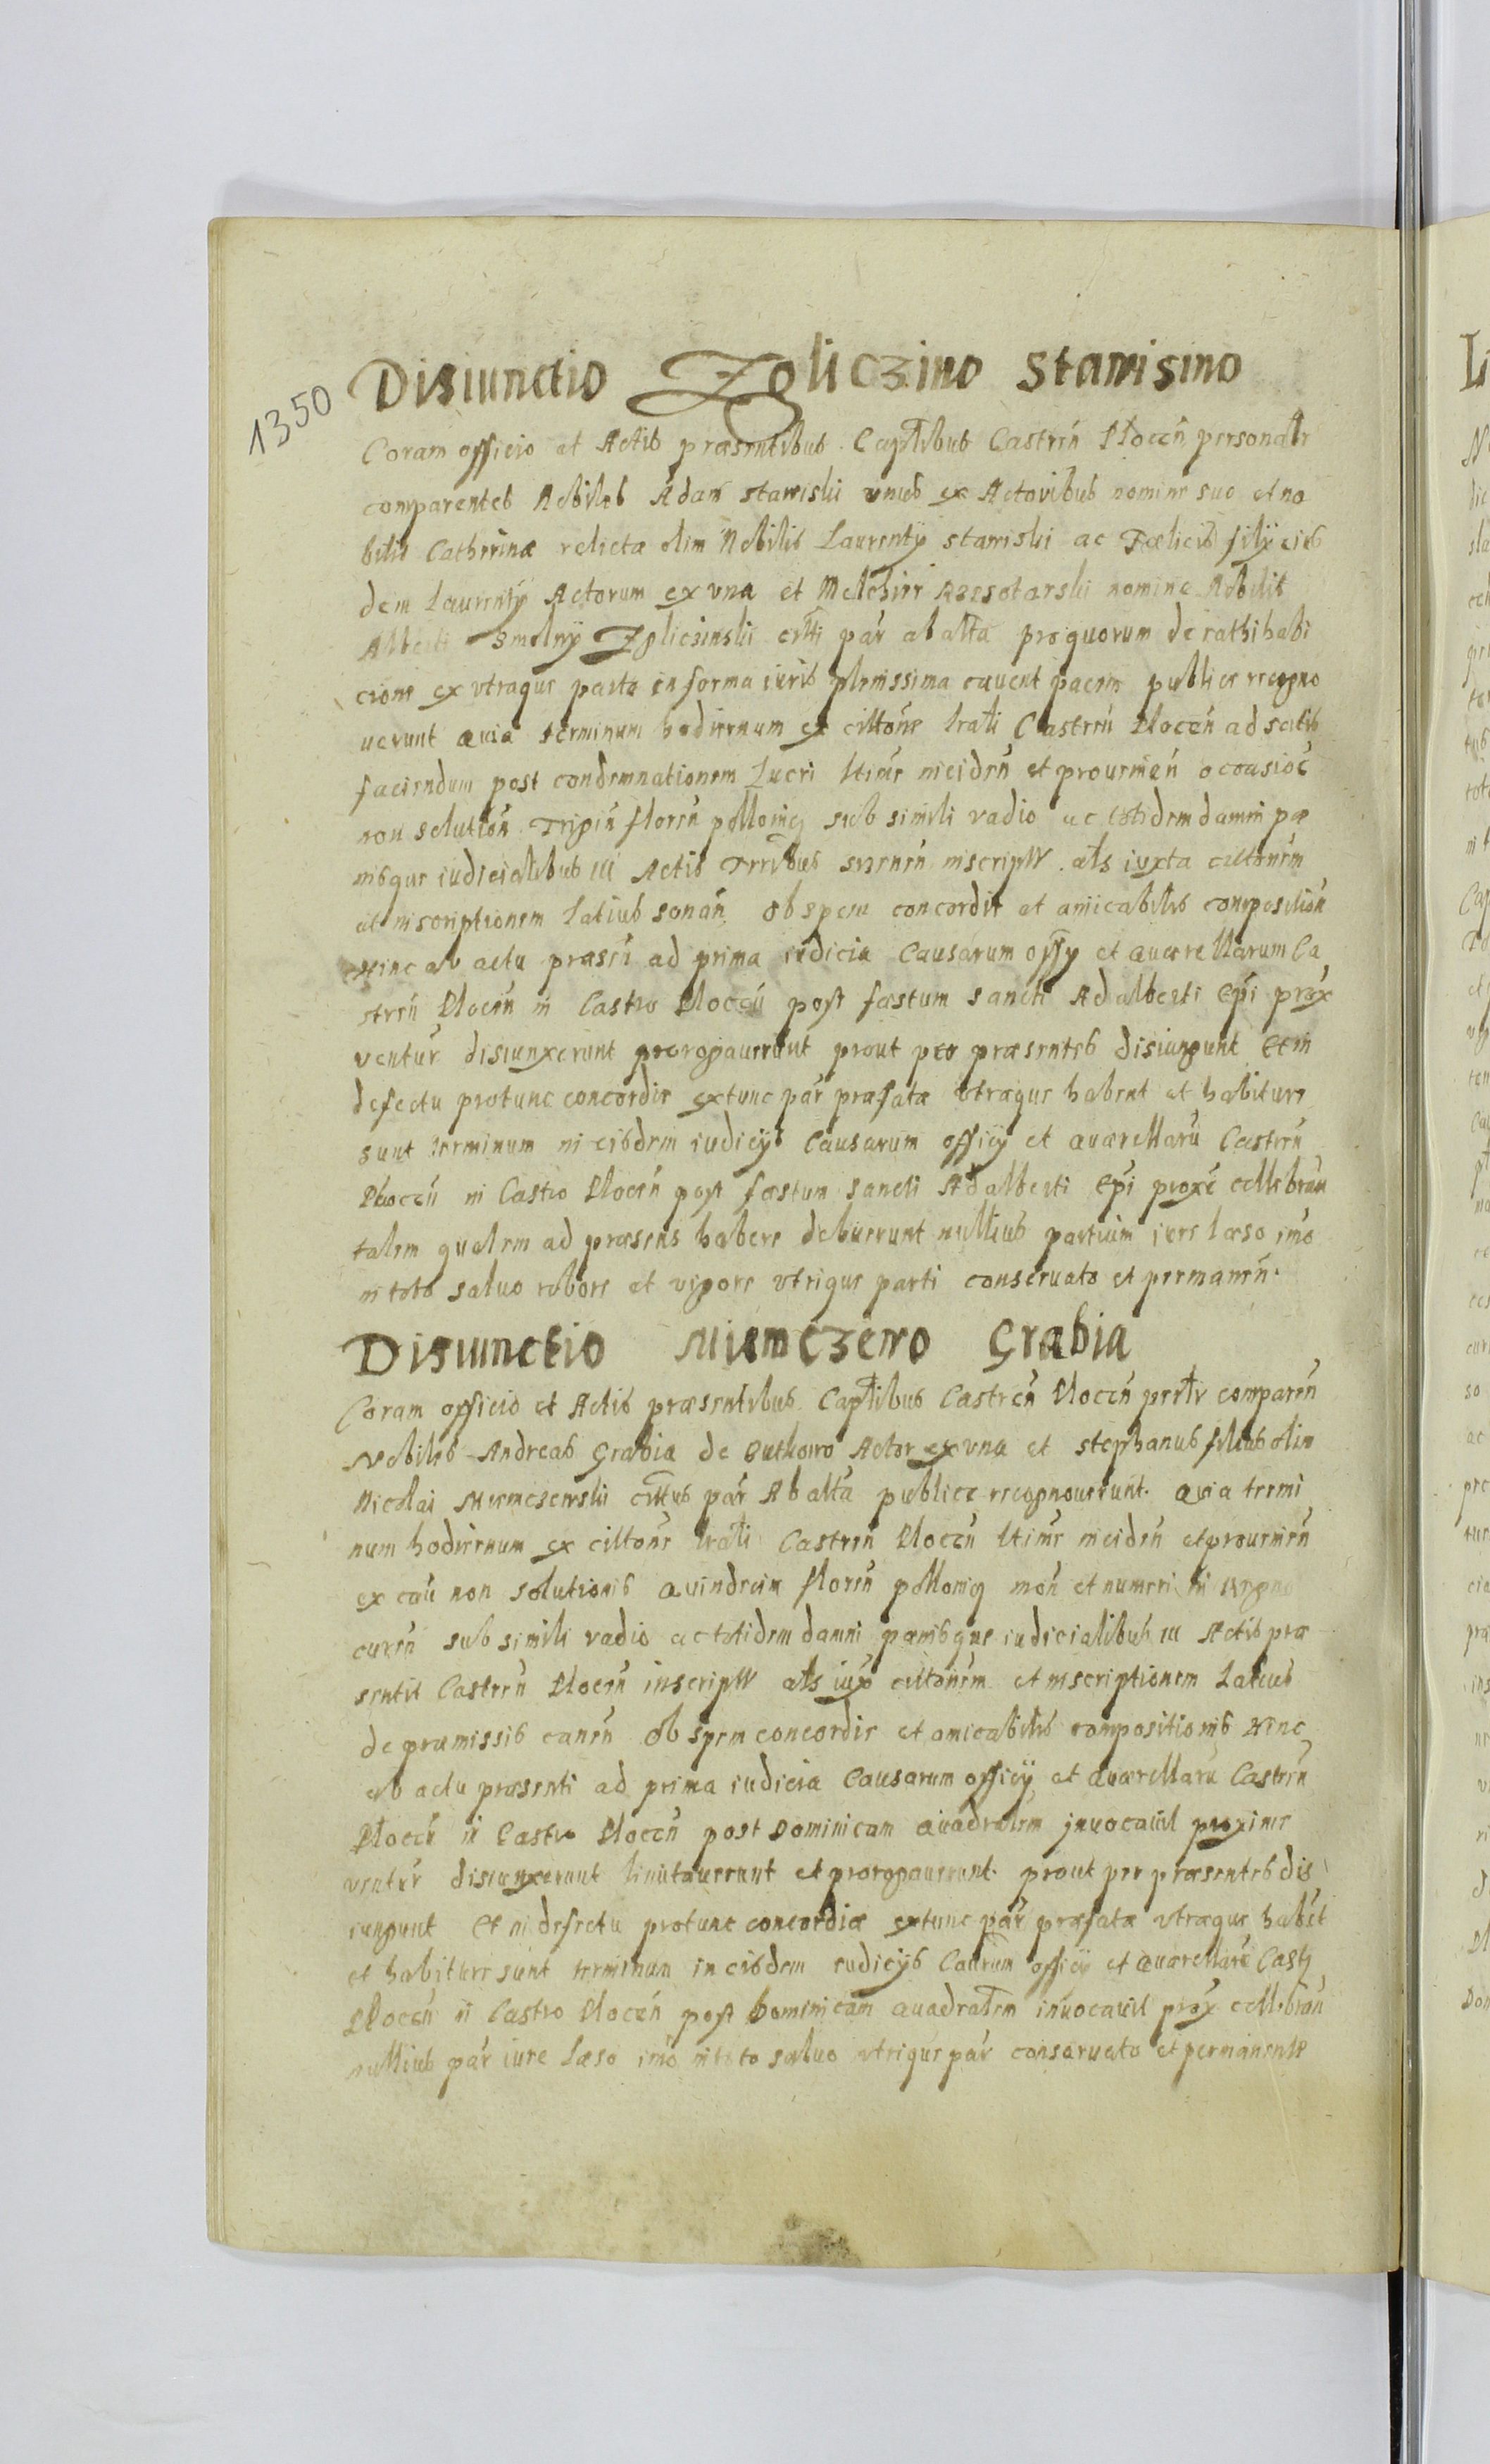 1350
Disiunctio Zgliczino Stawisino
Coram officio et Actis præsentibus Captlibus Castren Plocen personalr
comparentes Nobiles Adam Stawiski vnus ex Actoribus nomine suo et no
bilis Catherinæ relictæ olim Nobilis Laurentÿ Stawiski ac Fœlicis filÿ eius
dem Laurentÿ Actorum ex vna et Melchior nomine Nobilis
Alberti Smolnÿ Zgliczinski citti par ab alta pro quorum de rathihabi
cione ex vtraque parte in forma iuris plenissima cauent pacem publice recogno
uerunt Quia terminum hodiernum ex cittone trali Castren Plocen ad satis
faciendum post condemnationem Lucri ltime inciden et prouenien occasioe
non solution Trigin floren pollonic sub simili vadio ac totidem damni pæ
nisque iudicialibus in Actis Trribus inscript als iuxta cittonem
et inscriptionem latius sonan Ob spem concordiæ et amicabilis composition
Hinc ab actu præsen ad prima iudicia Causarum offÿ et Quærellarum Ca
stren Plocen in Castro Plocen post fæstum Sancti Adalberti Epi prox
ventur disiunxerunt prorogauerunt prout per præsentes disiungunt Et in
defectu protunc concordiæ extunc par præfatæ vtræque habent et habituræ
sunt terminum in eisdem iudicÿs Causarum officÿ et Quærellaru Castren
Plocen in Castro Plocen post fæstum Sancti Adalberti Epi proxe cellebran
talem qualem ad præsens habere debuerunt nullius partium iure læso imo
in toto saluo robore et vigore vtrique parti conseruato et permanen.
Disiunctio Niemczewo Grabia
Coram officio et Actis præsentibus Captlibus Castren Plocen perslr comparen
Nobiles Andreas Grabia de Guthowo Actor ex vna et Stephanus filius olim
Nicolai Niemczewski cittus par Ab alta publice recognouerunt. Quia termi
num hodiernum ex cittone trali Castren Plocen ltime inciden et prouenien
ex cau non solutionis Quindecim floren pollonic mon et numeri in Regno
curen sub simili vadio ac totidem damni pænisque iudicialibus in Actis præ
sentis Castren Plocen inscript als iux cittonem et inscriptionem Latius
de præmissis canen Ob spem concordiæ et amicabilis compositionis Hinc
ab actu præsenti ad prima iudicia Causarum officÿ et Quærellaru Castren
Plocen in Castro Plocen post Dominicam Quadralem inuocauit proxime
ventur disiunxerunt limitauerunt et prorogauerunt. prout per præsentes dis
iungunt Et in defectu protunc concordiæ extunc par præfatæ vtræque habet
et habituræ sunt terminum in eisdem iudicÿs Caurum officÿ et Quærellaru Cast
Plocen in Castro Plocen post Dominicam Quadralem inuocauit prox cellebran
nullius par iure læso imo in toto saluo vtrique par conseruato et permanente